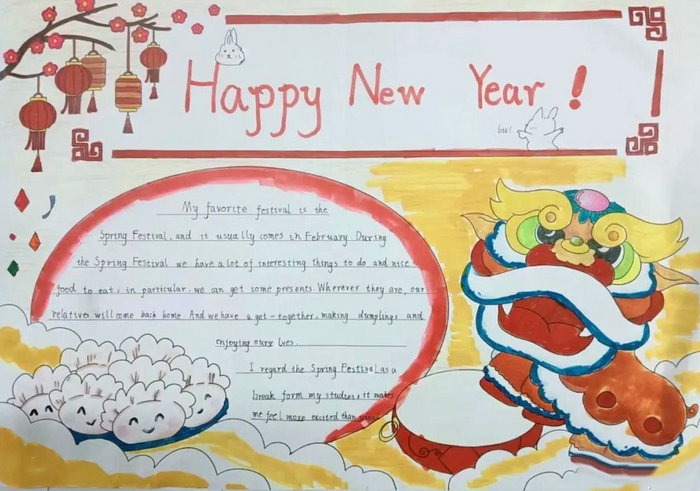 Happy New Year !
My favorite festival is the
Spring Festival, and it usually comes in February. During
the Spring Festival we have a lot of interesting things to do and nice
food to eat, in particular, we can get some presents. Wherever they are, our
relatives will come back home. And we have a get-together, making dumplings and
enjoying ourselves.
I regard the Spring Festival as a
break form my studies, it makes
me feel more excited than usual